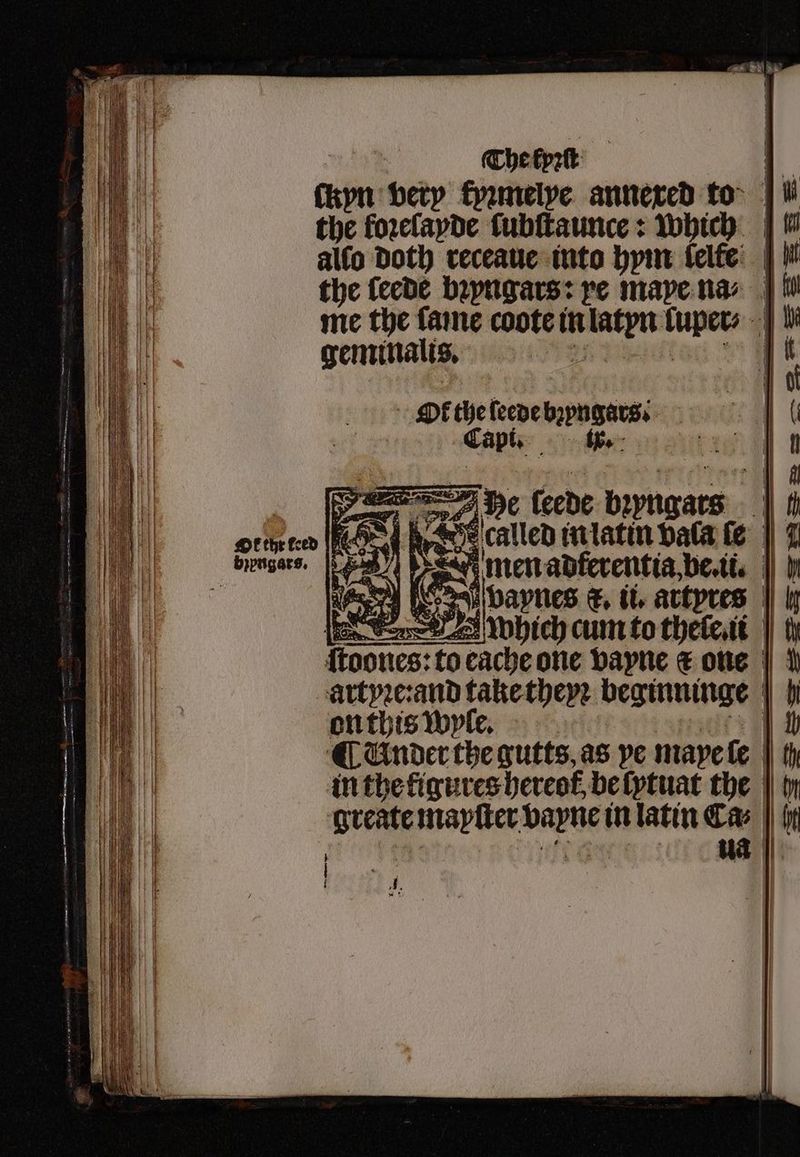 The fyrst
skyn very fyrmelye annexed to
the foresayde substaunce : Which
also doth receaue into hym selfe
the seede bryngars: ye maye na-
me the same coote in latyn super-
geminalis.
Of the seede bryngars.
Capi. ix.
THe seede bryngars
called in latin vasa se
men adferentia, be .ii.
vaynes &, ii. artyres
Which cum to these .ii
stoones: to eache one vayne & one
artyre: and take theyr beginninge
on this wyse.
¶ Under the gutts, as ye maye se
in the figures hereof, be sytuat the
greate mayster vayne in latin Ca-
ua
Of the seed
bryngars.